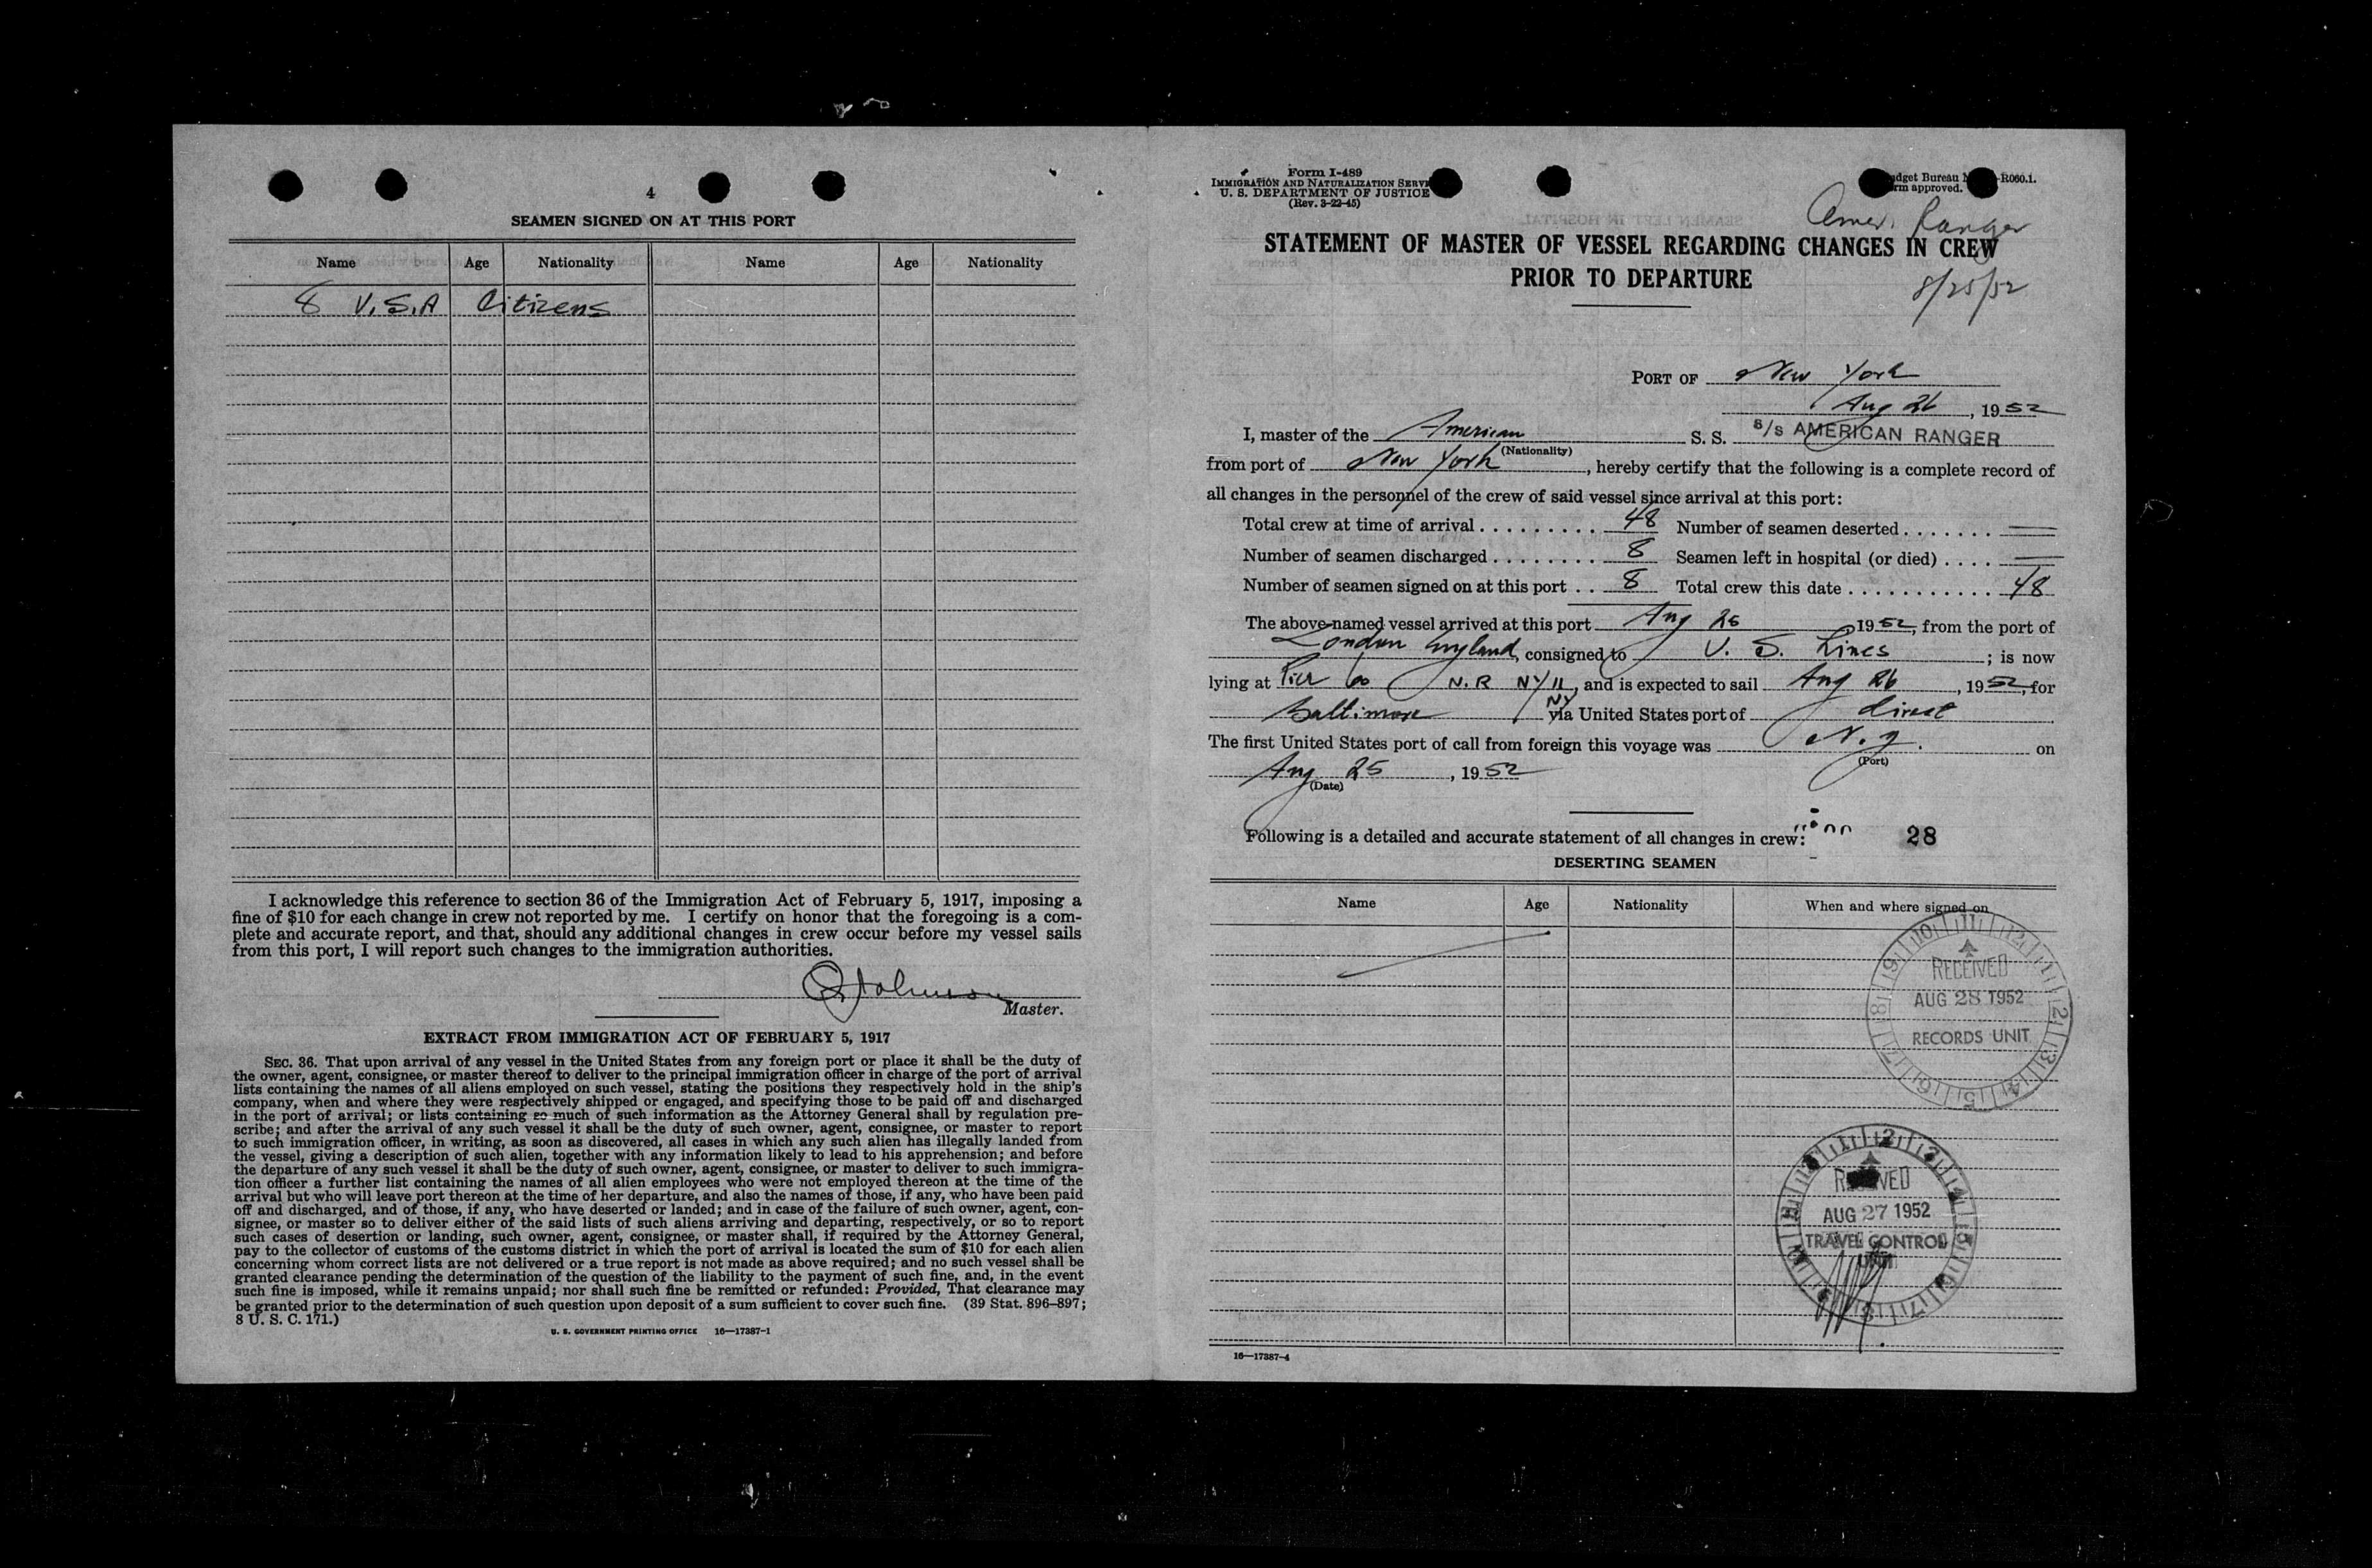 4
SEAMEN SIGNED ON AT THIS PORT
Name Age Nationality Name Age Nationality
8 U.S.A Citizens
I acknowledge this reference to section 36 of the Immigration Act of February 5, 1917, imposing a
fine of $10 for each change in crew not reported by me. I certify on honor that the foregoing is a com-
plete and accurate report, and that, should any additional changes in crew occur before my vessel sails
from this port, I will report such changes to the immigration authorities.
Johnson
Master.
EXTRACT FROM IMMIGRATION ACT OF FEBRUARY 5, 1917
SEC. 36. That upon arrival of any vessel in the United States from any foreign port or place it shall be the duty of
the owner, agent, consignee, or master thereof to deliver to the principal immigration officer in charge of the port of arrival
lists containing the names of all aliens employed on such vessel, stating the positions they respectively hold in the ship's
company, when and where they were respectively shipped or engaged, and specifying those to be paid off and discharged
in the port of arrival; or lists containing so much of such information as the Attorney General shall by regulation pre-
scribe; and after the arrival of any such vessel it shall be the duty of such owner, agent, consignee, or master to report
to such immigration officer, in writing, as soon as discovered, all cases in which any such alien has illegally landed from
the vessel, giving a description of such alien, together with any information likely to lead to his apprehension; and before
the departure of any such vessel it shall be the duty of such owner, agent, consignee, or master to deliver to such immigra-
tion officer a further list containing the names of all alien employees who were not employed thereon at the time of the
arrival but who will leave port thereon at the time of her departure, and also the names of those, if any, who have been paid
off and discharged, and of those, if any, who have deserted or landed; and in case of the failure of such owner, agent, con-
signee, or master so to deliver either of the said lists of such aliens arriving and departing, respectively, or so to report
such cases of desertion or landing, such owner, agent, consignee, or master shall, if required by the Attorney General,
pay to the collector of customs of the customs district in which the port of arrival is located the sum of $10 for each alien
concerning whom correct lists are not delivered or a true report is not made as above required; and no such vessel shall be
granted clearance pending the determination of the question of the liability to the payment of such fine, and, in the event
such fine is imposed, while it remains unpaid; nor shall such fine be remitted or refunded: Provided, That clearance may
be granted prior to the determination of such question upon deposit of a sum sufficient to cover such fine. (39 Stat. 896–897;
8 U. S. C. 171.)
U. S. GOVERNMENT PRINTING OFFICE 16—17387-1
Form I-489
IMMIGRATION AND NATURALIZATION SERV
U. S. DEPARTMENT OF JUSTICE
(Rev. 3-22-45)
dget Bureau -R060.1.
rm approved.
Amer. Ranger
STATEMENT OF MASTER OF VESSEL REGARDING CHANGES IN CREW
PRIOR TO DEPARTURE
8/25/52
PORT OF New York
Aug 26, 1952
I, master of the American S. S. S/S AMERICAN RANGER
(Nationality)
from port of New York, hereby certify that the following is a complete record of
all changes in the personnel of the crew of said vessel since arrival at this port:
Total crew at time of arrival 48 Number of seamen deserted —
Number of seamen discharged 8 Seamen left in hospital (or died) —
Number of seamen signed on at this port 8 Total crew this date 48
The above-named vessel arrived at this port Aug 25 1952, from the port of
London England, consigned to U. S. Lines; is now
lying at Pier 60 N.R NY 11 NY, and is expected to sail Aug 26, 1952, for
Baltimore via United States port of direct
The first United States port of call from foreign this voyage was N.Y. on
(Port)
Aug 25, 1952
(Date)
Following is a detailed and accurate statement of all changes in crew: 28
DESERTING SEAMEN
Name Age Nationality When and where signed on
RECEIVED
AUG 28 1952
RECORDS UNIT
RECEIVED
AUG 27 1952
TRAVEL CONTROL
UNIT
16—17387-4